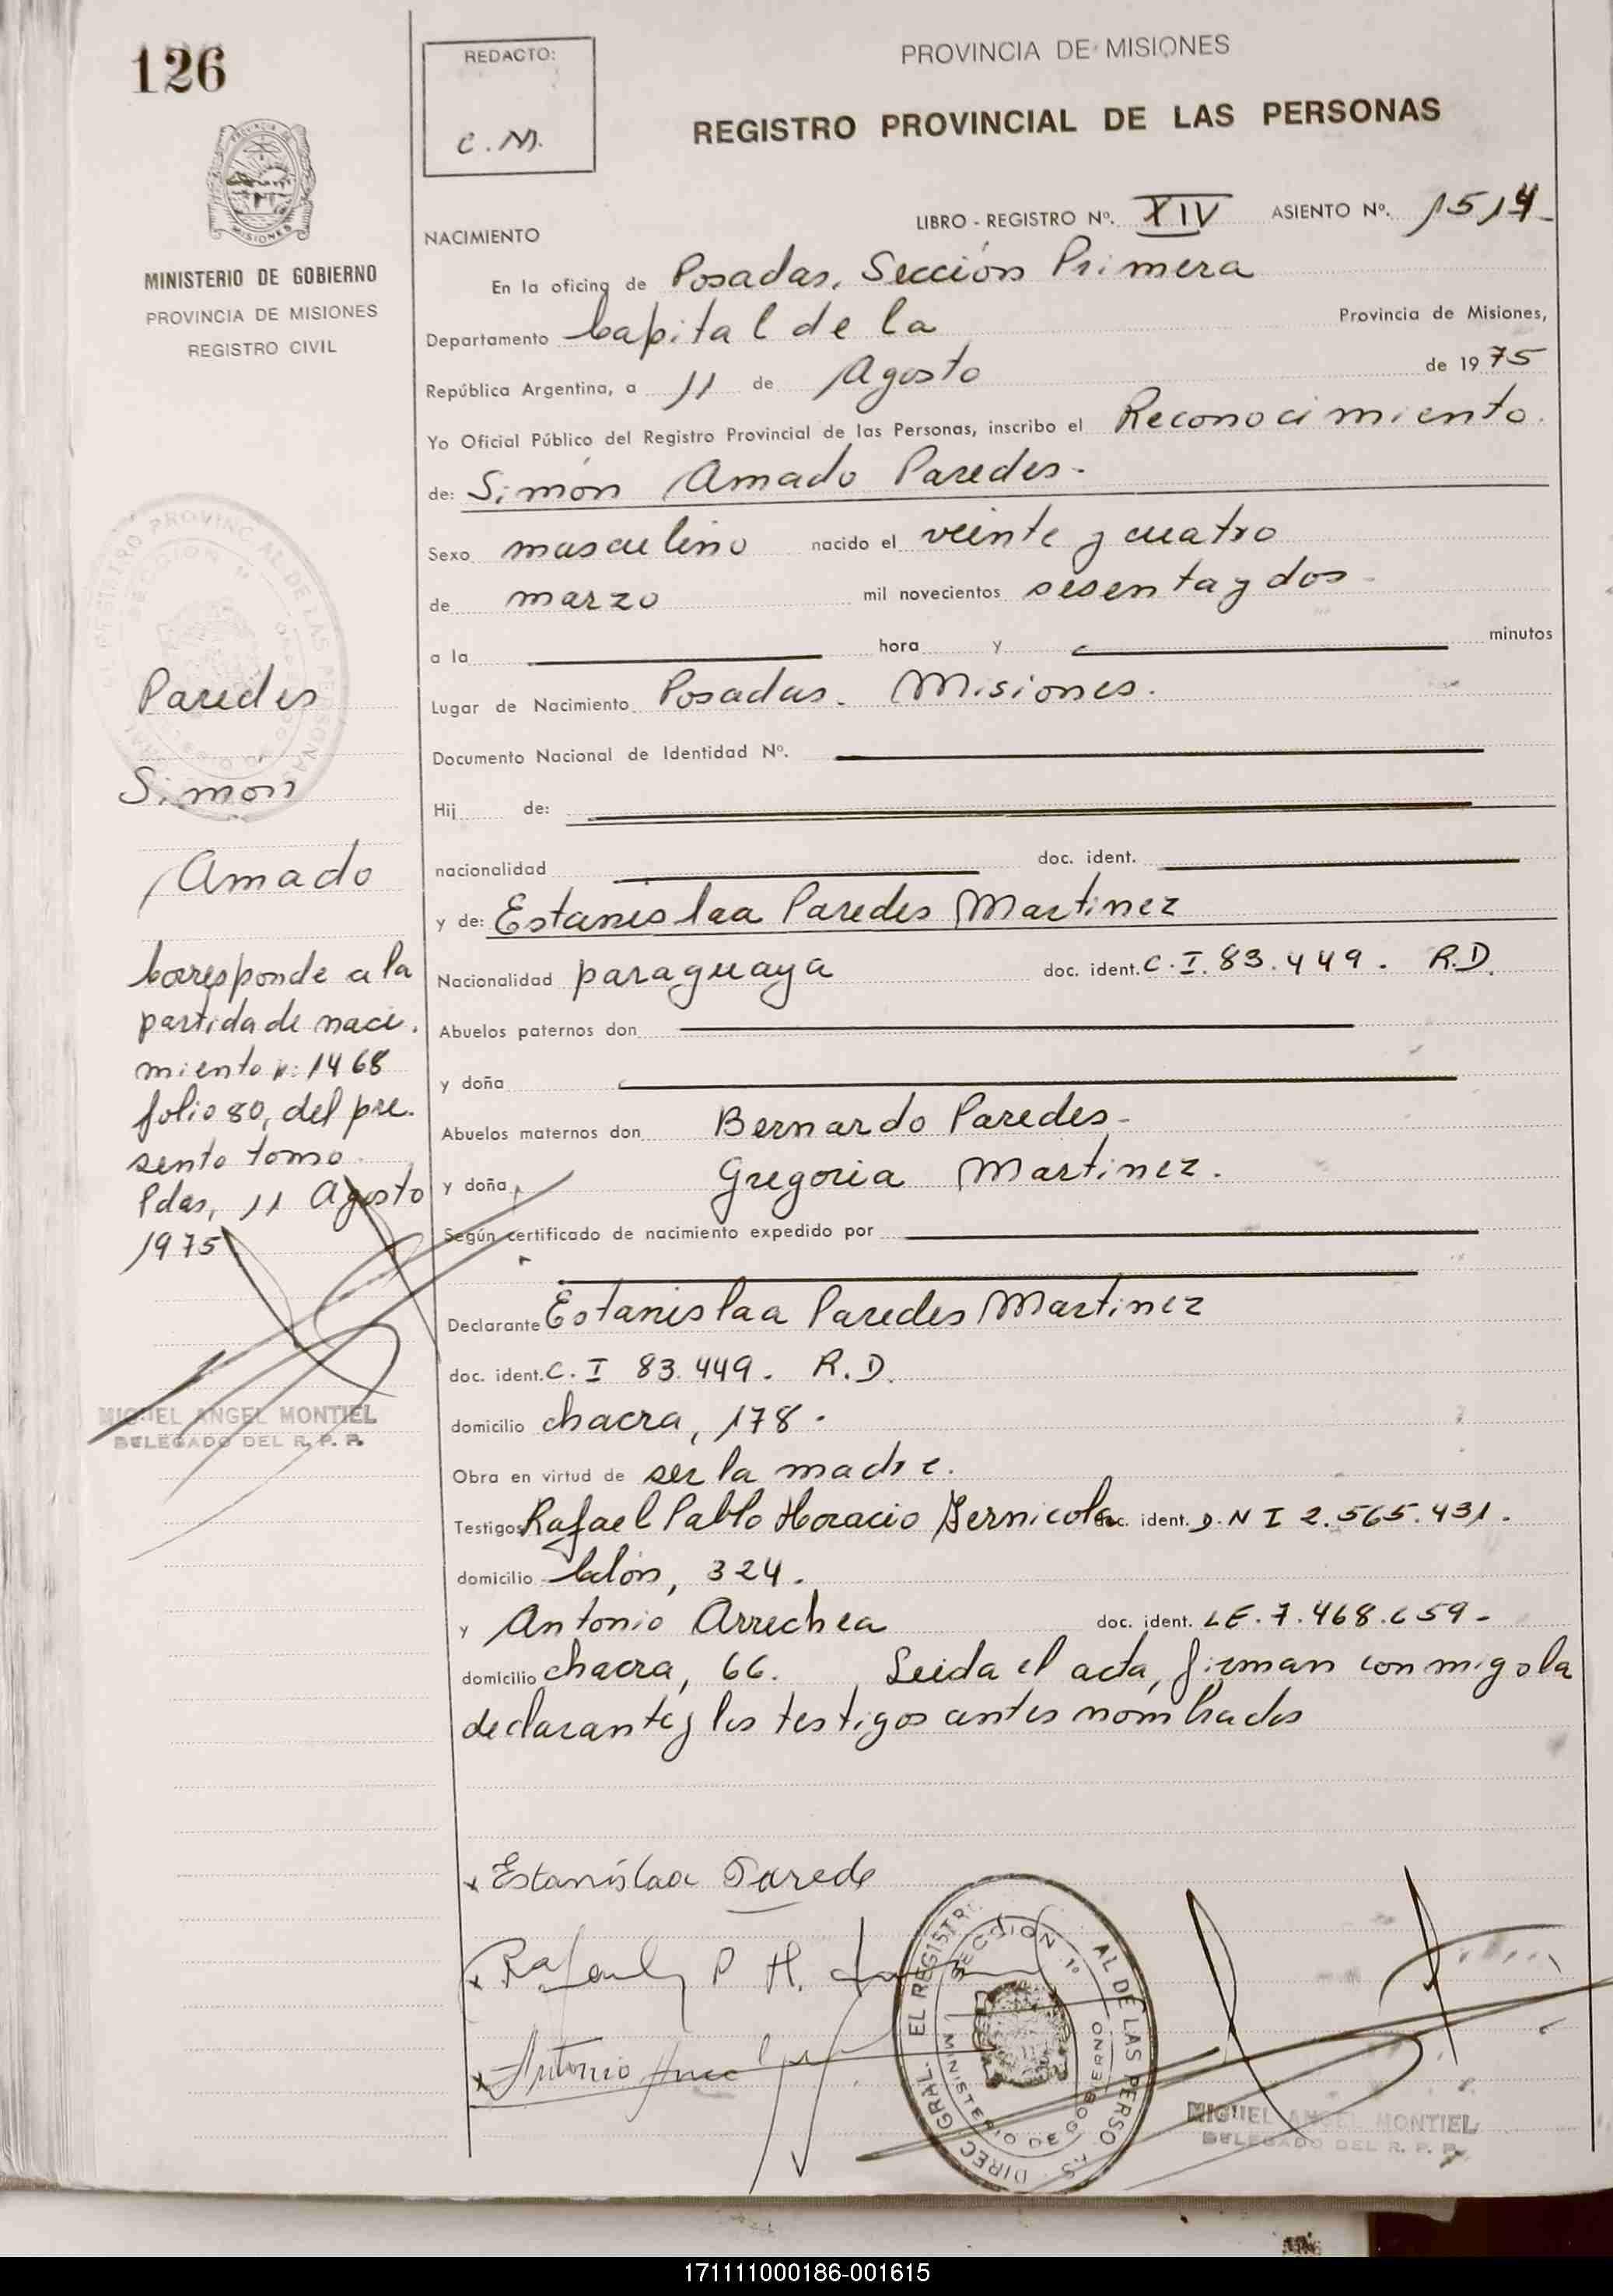 126
REDACTO:
C. M.
PROVINCIA DE MISIONES
REGISTRO PROVINCIAL DE LAS PERSONAS
MISIONES
MINISTERIO DE GOBIERNO
PROVINCIA DE MISIONES
REGISTRO CIVIL
LIBRO - REGISTRO Nº. XIV ASIENTO Nº. 1514-
NACIMIENTO
En la oficina de Posadas, Sección Primera
Departamento Capital de la Provincia de Misiones,
República Argentina, a 11 de Agosto de 1975
Yo Oficial Público del Registro Provincial de las Personas, inscribo el Reconocimiento.
de: Simón Amado Paredes-
Sexo masculino nacido el veinte y cuatro
de marzo mil novecientos sesenta y dos-
a la hora y minutos
Lugar de Nacimiento Posadas. Misiones.
Documento Nacional de Identidad Nº.
Hij de:
nacionalidad doc. ident.
y de: Estanislaa Paredes Martinez
Nacionalidad paraguaya doc. ident. C. I. 83.449. R.D.
Abuelos paternos don
y doña
Abuelos maternos don Bernardo Paredes-
y doña Gregoria Martinez.
Según certificado de nacimiento expedido por
Declarante Estanislaa Paredes Martinez
doc. ident. C. I 83.449. R.D.
domicilio chacra, 178.
Obra en virtud de ser la madre.
Testigos Rafael Pablo Horacio Gernicola doc. ident. D.N I 2.565.431.
domicilio Colón, 324.
y Antonio Arrechea doc. ident. LE. 7.468.659-
domicilio chacra, 66. Leida el acta, firman conmigo la
declarante y los testigos antes nombrados
Paredes
Simón
Amado
Corresponde a la
partida de naci.
miento n: 1468
folio 80, del pre.
sente tomo.
Pdas, 11 Agosto
1975
MIGUEL ANGEL MONTIEL
DELEGADO DEL R. P. P.
x Estanislaa Parede
x Rafael P H.
x Antonio
SECCION 1º
MINISTERIO DE GOBIERNO
MIGUEL ANGEL MONTIEL
DELEGADO DEL R. P. P.
171111000186-001615